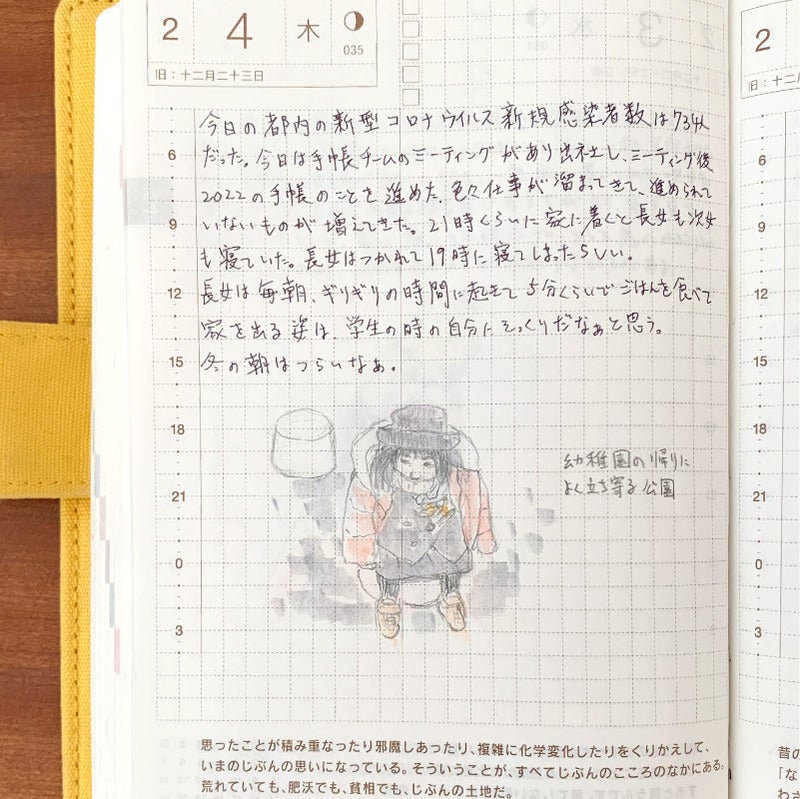 2 4 木
035
旧：十二月二十三日
今日の都内の新型コロナウイルス新規感染者数は734人
だった。今日は手帳チームのミーティングがあり出社し、ミーティング後
2022の手帳のことを進めた。色々仕事が溜まってきて、進められて
いないものが増えてきた。21時くらいに家に着くと長女も次女
も寝ていた。長女はつかれて19時に寝てしまったらしい。
長女は毎朝、ギリギリの時間に起きて5分くらいでごはんを食べて
家を出る姿は、学生の時の自分にそっくりだなぁと思う。
冬の朝はつらいなぁ。
6
9
12
15
18
21
0
3
幼稚園の帰りに
よく立ち寄る公園
思ったことが積み重なったり邪魔しあったり、複雑に化学変化したりをくりかえして、
いまのじぶんの思いになっている。そういうことが、すべてじぶんのこころのなかにある。
荒れていても、肥沃でも、貧相でも、じぶんの土地だ。
2
旧：十二
6
9
12
15
18
21
0
3
昔の
「な
わさ